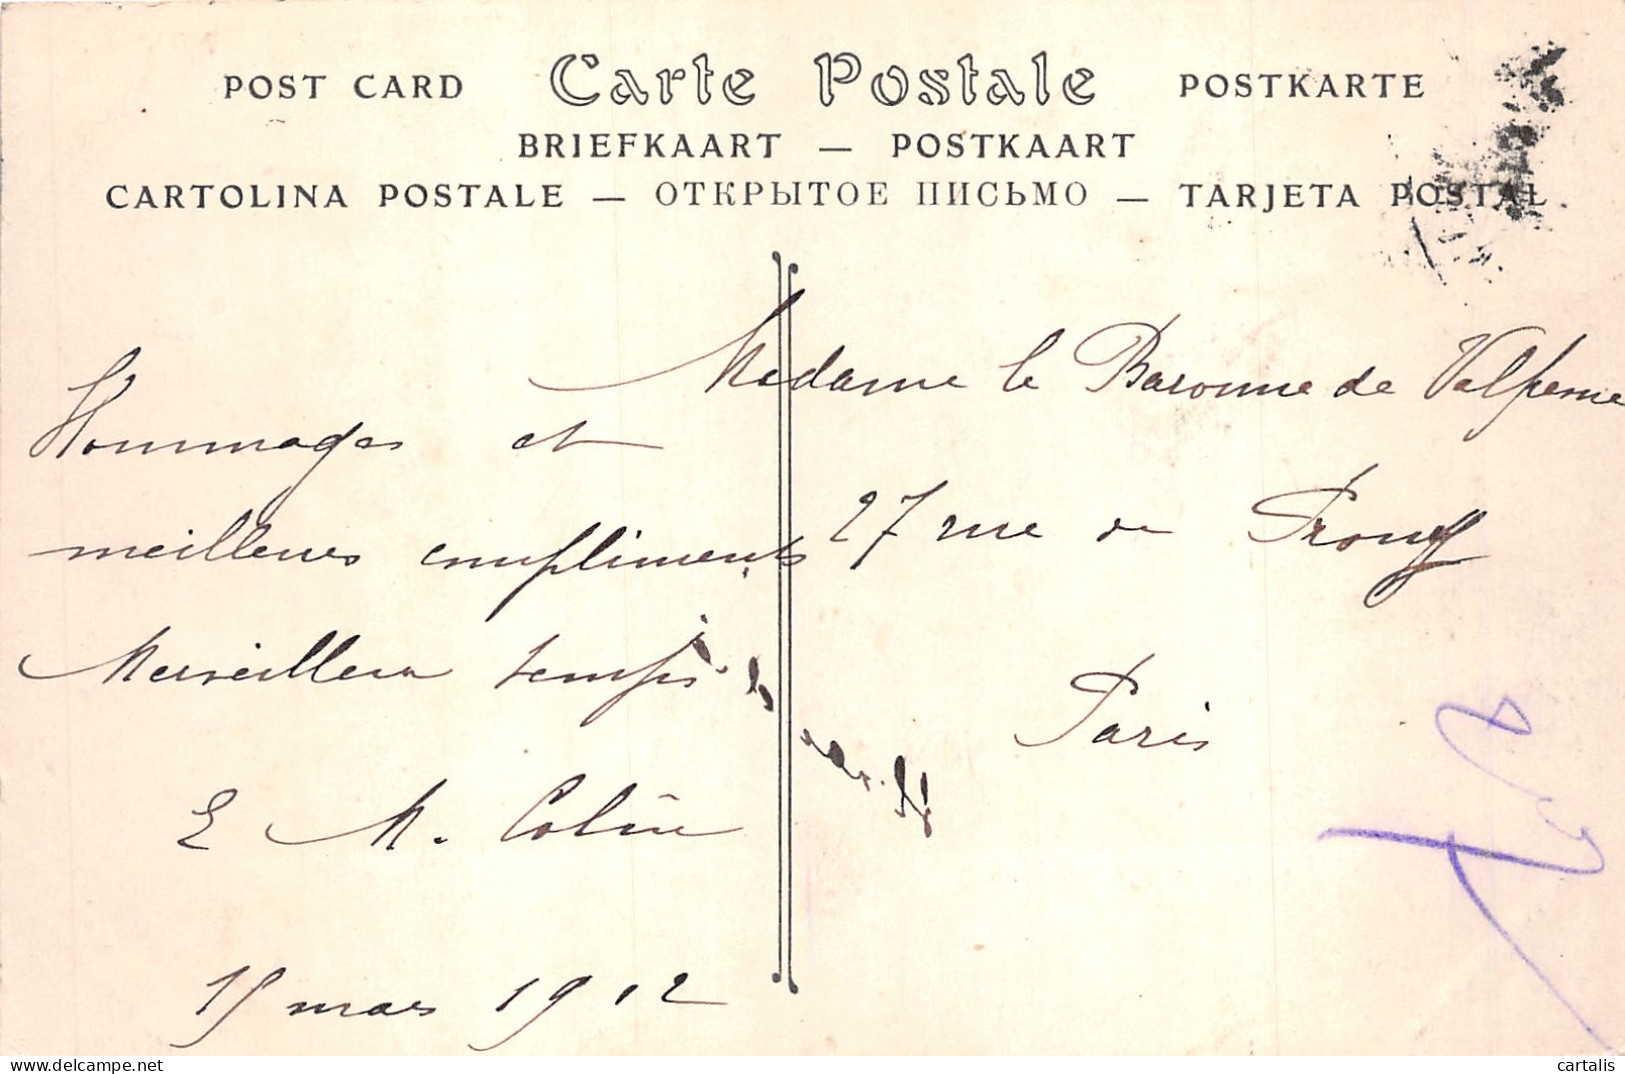 POST CARD Carte Postale POSTKARTE
BRIEFKAART — POSTKAART
CARTOLINA POSTALE — ОТКРЫТОЕ ПИСЬМО — TARJETA POSTAL
Hommages et
meilleurs compliments
Merveilleux temps
E M. Colin
15 mars 1912
Madame la Baronne de
27 rue de Prony
Paris
delcampe.net
cartalis